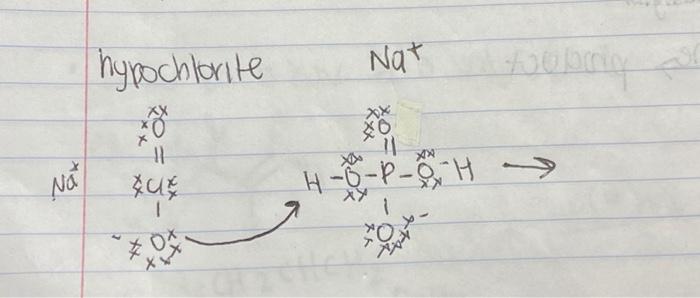 hypochlorite Na+
O O
Na Cl H - O - P - O - H →
- O O -